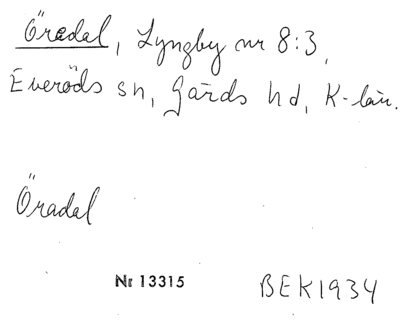 Öredal, Lyngby nr 8:3,
Everöds sn, Gärds hd, K-län.
Öradal
Nr 13315 BEK1934